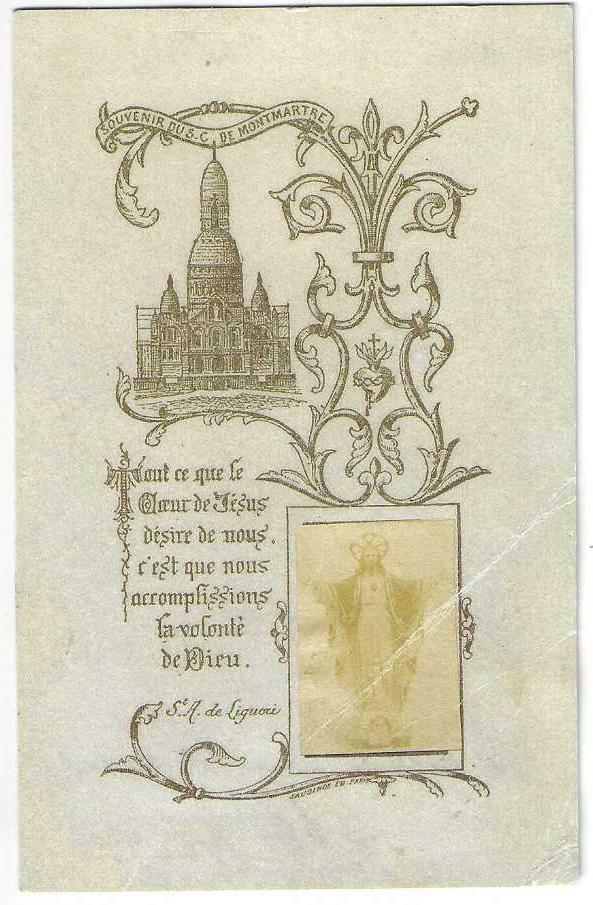 SOUVENIR DU S.C. DE MONTMARTRE
Tout ce que le
Cœur de Jésus
désire de nous,
c'est que nous
accomplissions
la volonté
de Dieu.
St A. de Liguori
SAUDINOS ED. PARIS